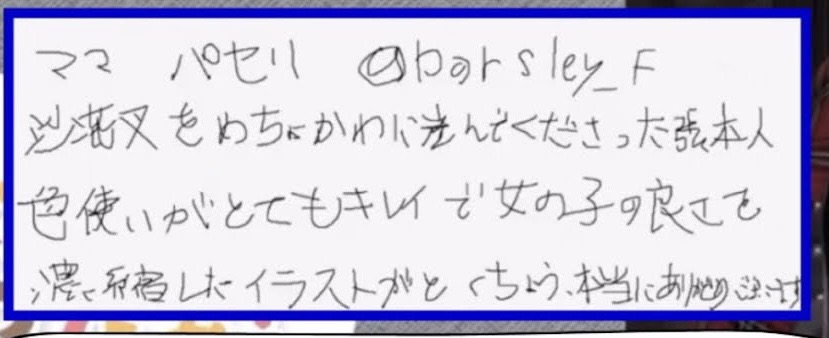 ママ パセリ @parsley_F
沙花叉をめちゃかわに産んでくださった張本人
色使いがとてもキレイで女の子の良さを
濃縮したイラストがとくちょう、本当にありがとうございます